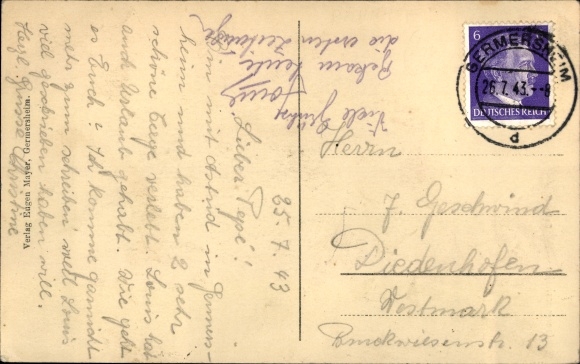 25.7.43
Lieber Pepi!
Bin mit Astrid in Germers-
heim und haben 2 sehr
schöne Tage verlebt. Louis hat
auch Urlaub gehabt. Wie geht
es Euch? Ich komme garnicht
mehr zum schreiben weil Louis
viel geschrieben haben will.
Herzl. Grüsse Christine
Viele Grüße
Louis
Bekam heute
die ersten
Verlag Eugen Mayer, Germersheim.
6
DEUTSCHES REICH
GERMERSHEIM
26.7.43.-8
d
Herrn
J. Geschwind
Diedenhofen
Westmark
Bruckwiesenstr. 13